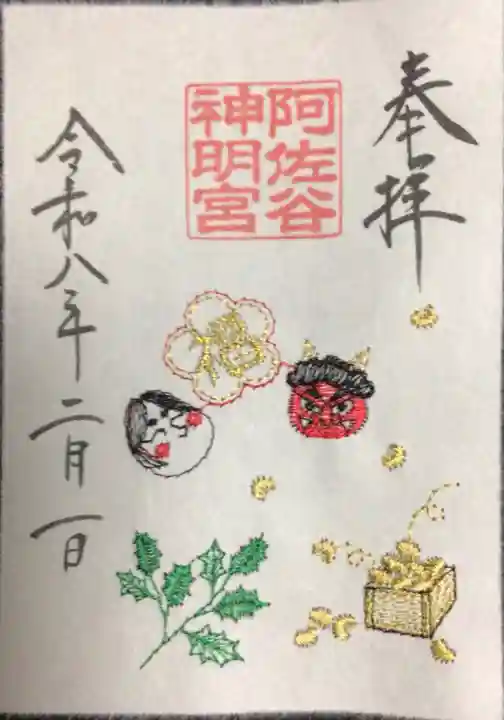 奉拝
阿佐谷
神明宮
福
令和八年二月一日